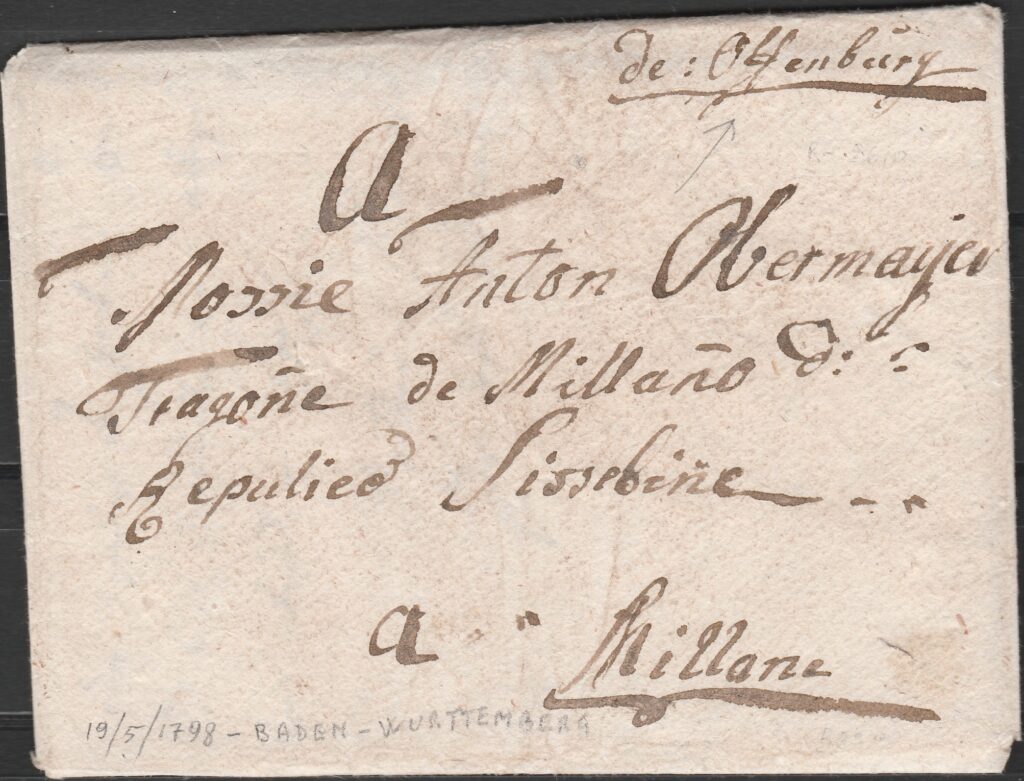 de: Offenburg
A
Mossie Anton Obermayer
Tragoñe de Millaño d:
Repulico Sissebiñe
a Millane
19/5/1798 - BADEN - WURTTEMBERG